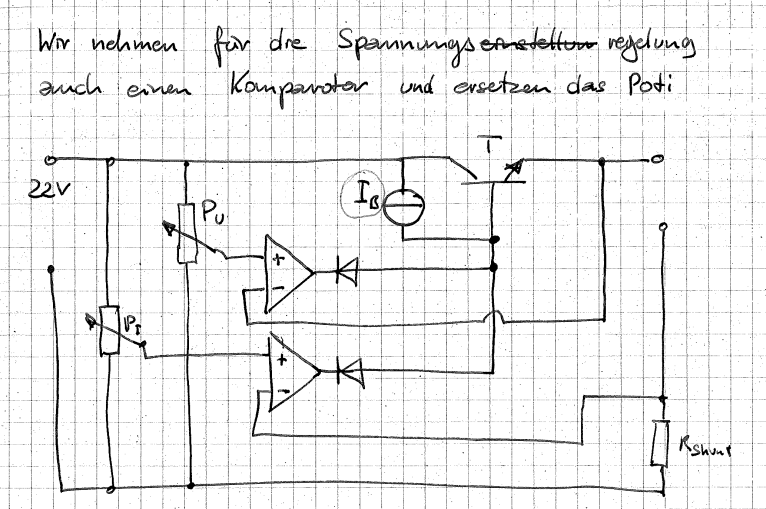 Wir nehmen für die Spannungseinstellun regelung
auch einen Komparator und ersetzen das Poti
T
22V
I_B
P_U
+
-
P_I
+
-
R_Shunt